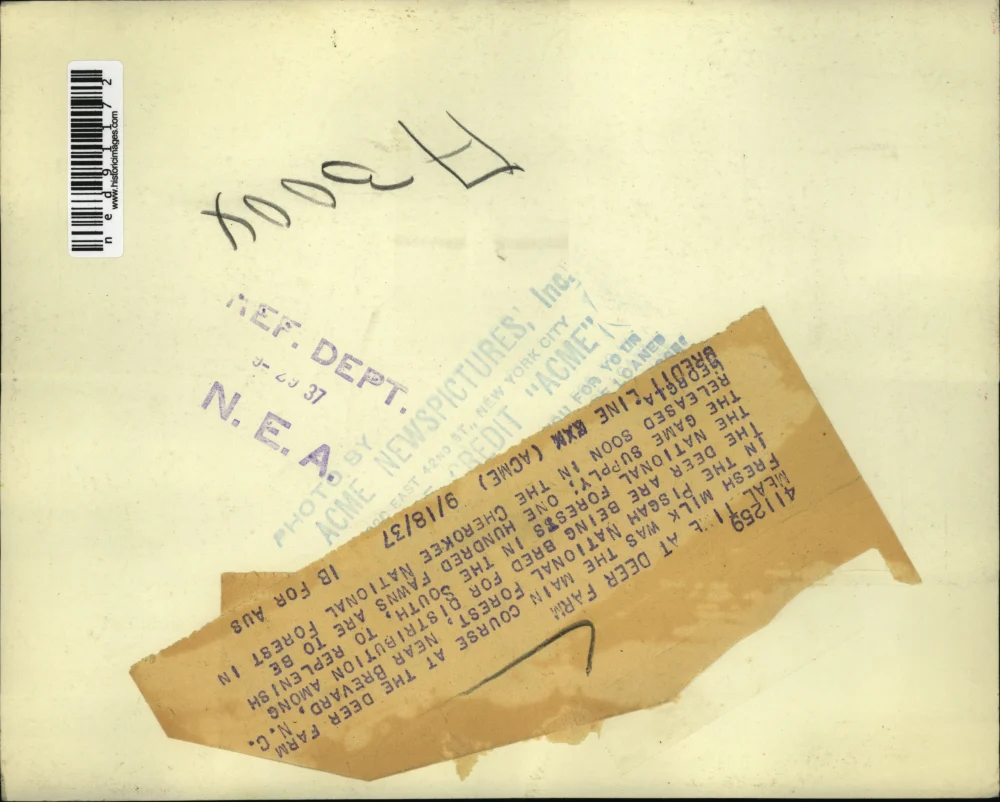 n e d 9 1 1 7 2
www.historicimages.com
REF. DEPT.
N. E. A.
PHOTO BY
ACME NEWSPICTURES, Inc.
EAST 42ND ST., NEW YORK CITY
CREDIT "ACME"
FOR YOUR
LOANED
411259
AT DEER FARM
FRESH MILK WAS THE MAIN COURSE AT THE DEER FARM
IN THE PISGAH NATIONAL FOREST, NEAR BREVARD, N.C.
THE DEER ARE BEING BRED FOR DISTRIBUTION AMONG
THE NATIONAL FORESTS IN THE SOUTH, TO REPLENISH
THE GAME SUPPLY, ONE HUNDRED FAWNS ARE TO BE
RELEASED SOON IN THE CHEROKEE NATIONAL FOREST IN
GEORGIA.
CREDIT LINE (ACME) 9/18/37 IB FOR AUS